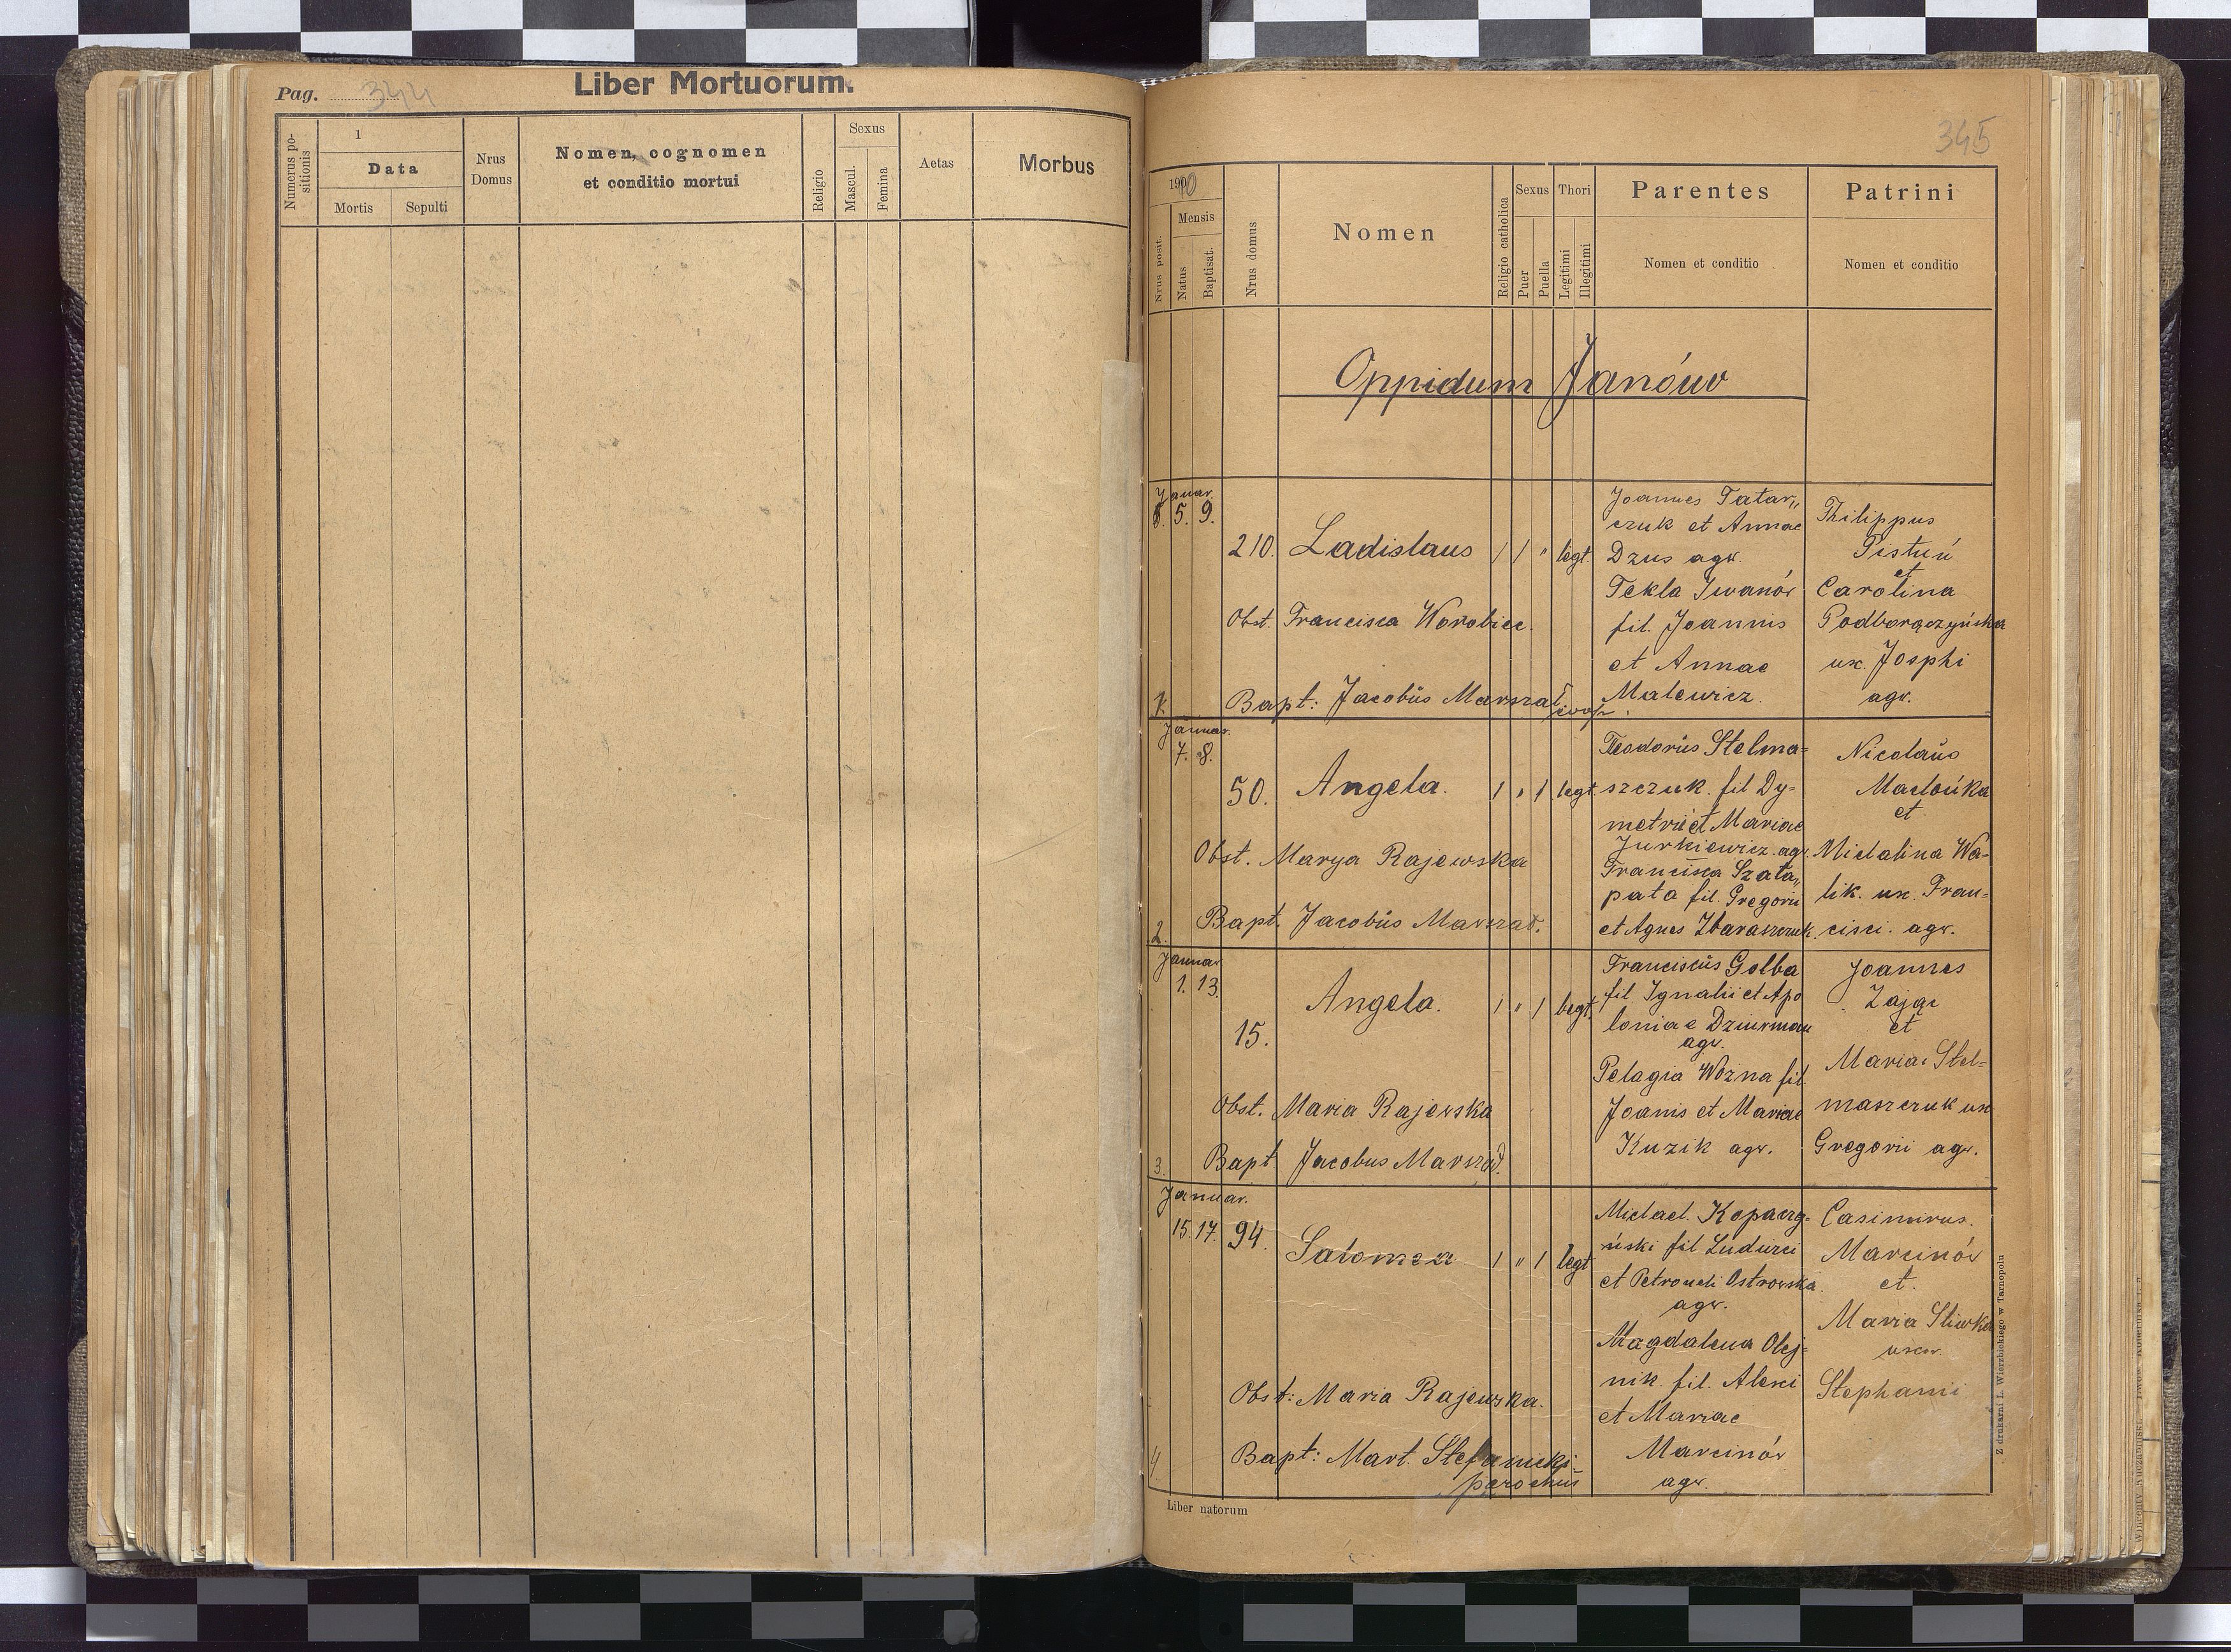 Pag. 344
Liber Mortuorum.
Numerus po-
sitionis
1
Data
Mortis
Sepulti
Nrus
Domus
Nomen, cognomen
et conditio mortui
Religio
Sexus
Mascul.
Femina
Aetas
Morbus
345
1910
Nrus posit.
Mensis
Natus
Baptisat.
Nrus domus
Nomen
Religio catholica
Sexus
Puer
Puella
Thori
Legitimi
Illegitimi
Parentes
Nomen et conditio
Patrini
Nomen et conditio
Oppidum Janów
Januar.
5. 9.
210. Ladislaus 1 1 " legt.
Obst. Francisca Worobiec.
1. Bapt: Jacobús Marszał
Joannes Tatar„
czuk et Annae
Dzus agr.
Tekla Iwanów
fil. Joannis
et Annae
Malewicz.
Philippus
Pistuń
et
Carolina
Podborączyńska
ux. Josphi
agr.
Januar.
7. 8.
50. Angela. 1 " 1 legt
Obst. Marya Rajewska
2. Bapt. Jacobús Marszał.
Teodorús Stelma=
szczuk. fil Dy=
metrii et Mariae
Jurkiewicz. agr.
Francisca Szata„
pata fil. Gregorii
et Agnes Zbaraszczuk.
Nicolaús
Maclońka
et
Michalina Wa=
lik. ux. Fran=
cisci. agr.
Januar
1. 13.
15. Angela. 1 " 1 legt.
Obst. Maria Rajewska
3. Bapt. Jacobus Marszał.
Franciscús Golba
fil Ignatii et Apo
loniae Dziurman
agr.
Pelagia Woźna fil.
Joanis et Mariae
Kuzik agr.
Joannes
Zając
et
Maria Stel=
maszczuk ux
Gregorii agr.
Januar.
15. 17. 94. Salomea 1 " 1 legt
Obst: Maria Rajewska.
4 Bapt: Mart. Stefanicki
parochus
Michael. Kopaczy=
ński fil Ludwici
et Petroneli Ostrowska.
agr.
Magdalena Olej=
nik. fil. Alexi
et Mariae
Marcinów
agr.
Casimirus.
Marcinów
et.
Maria Sliwka
uxor.
Stephanii
Liber natorum
Z drukarni L. Wierzbickiego w Tarnopolu